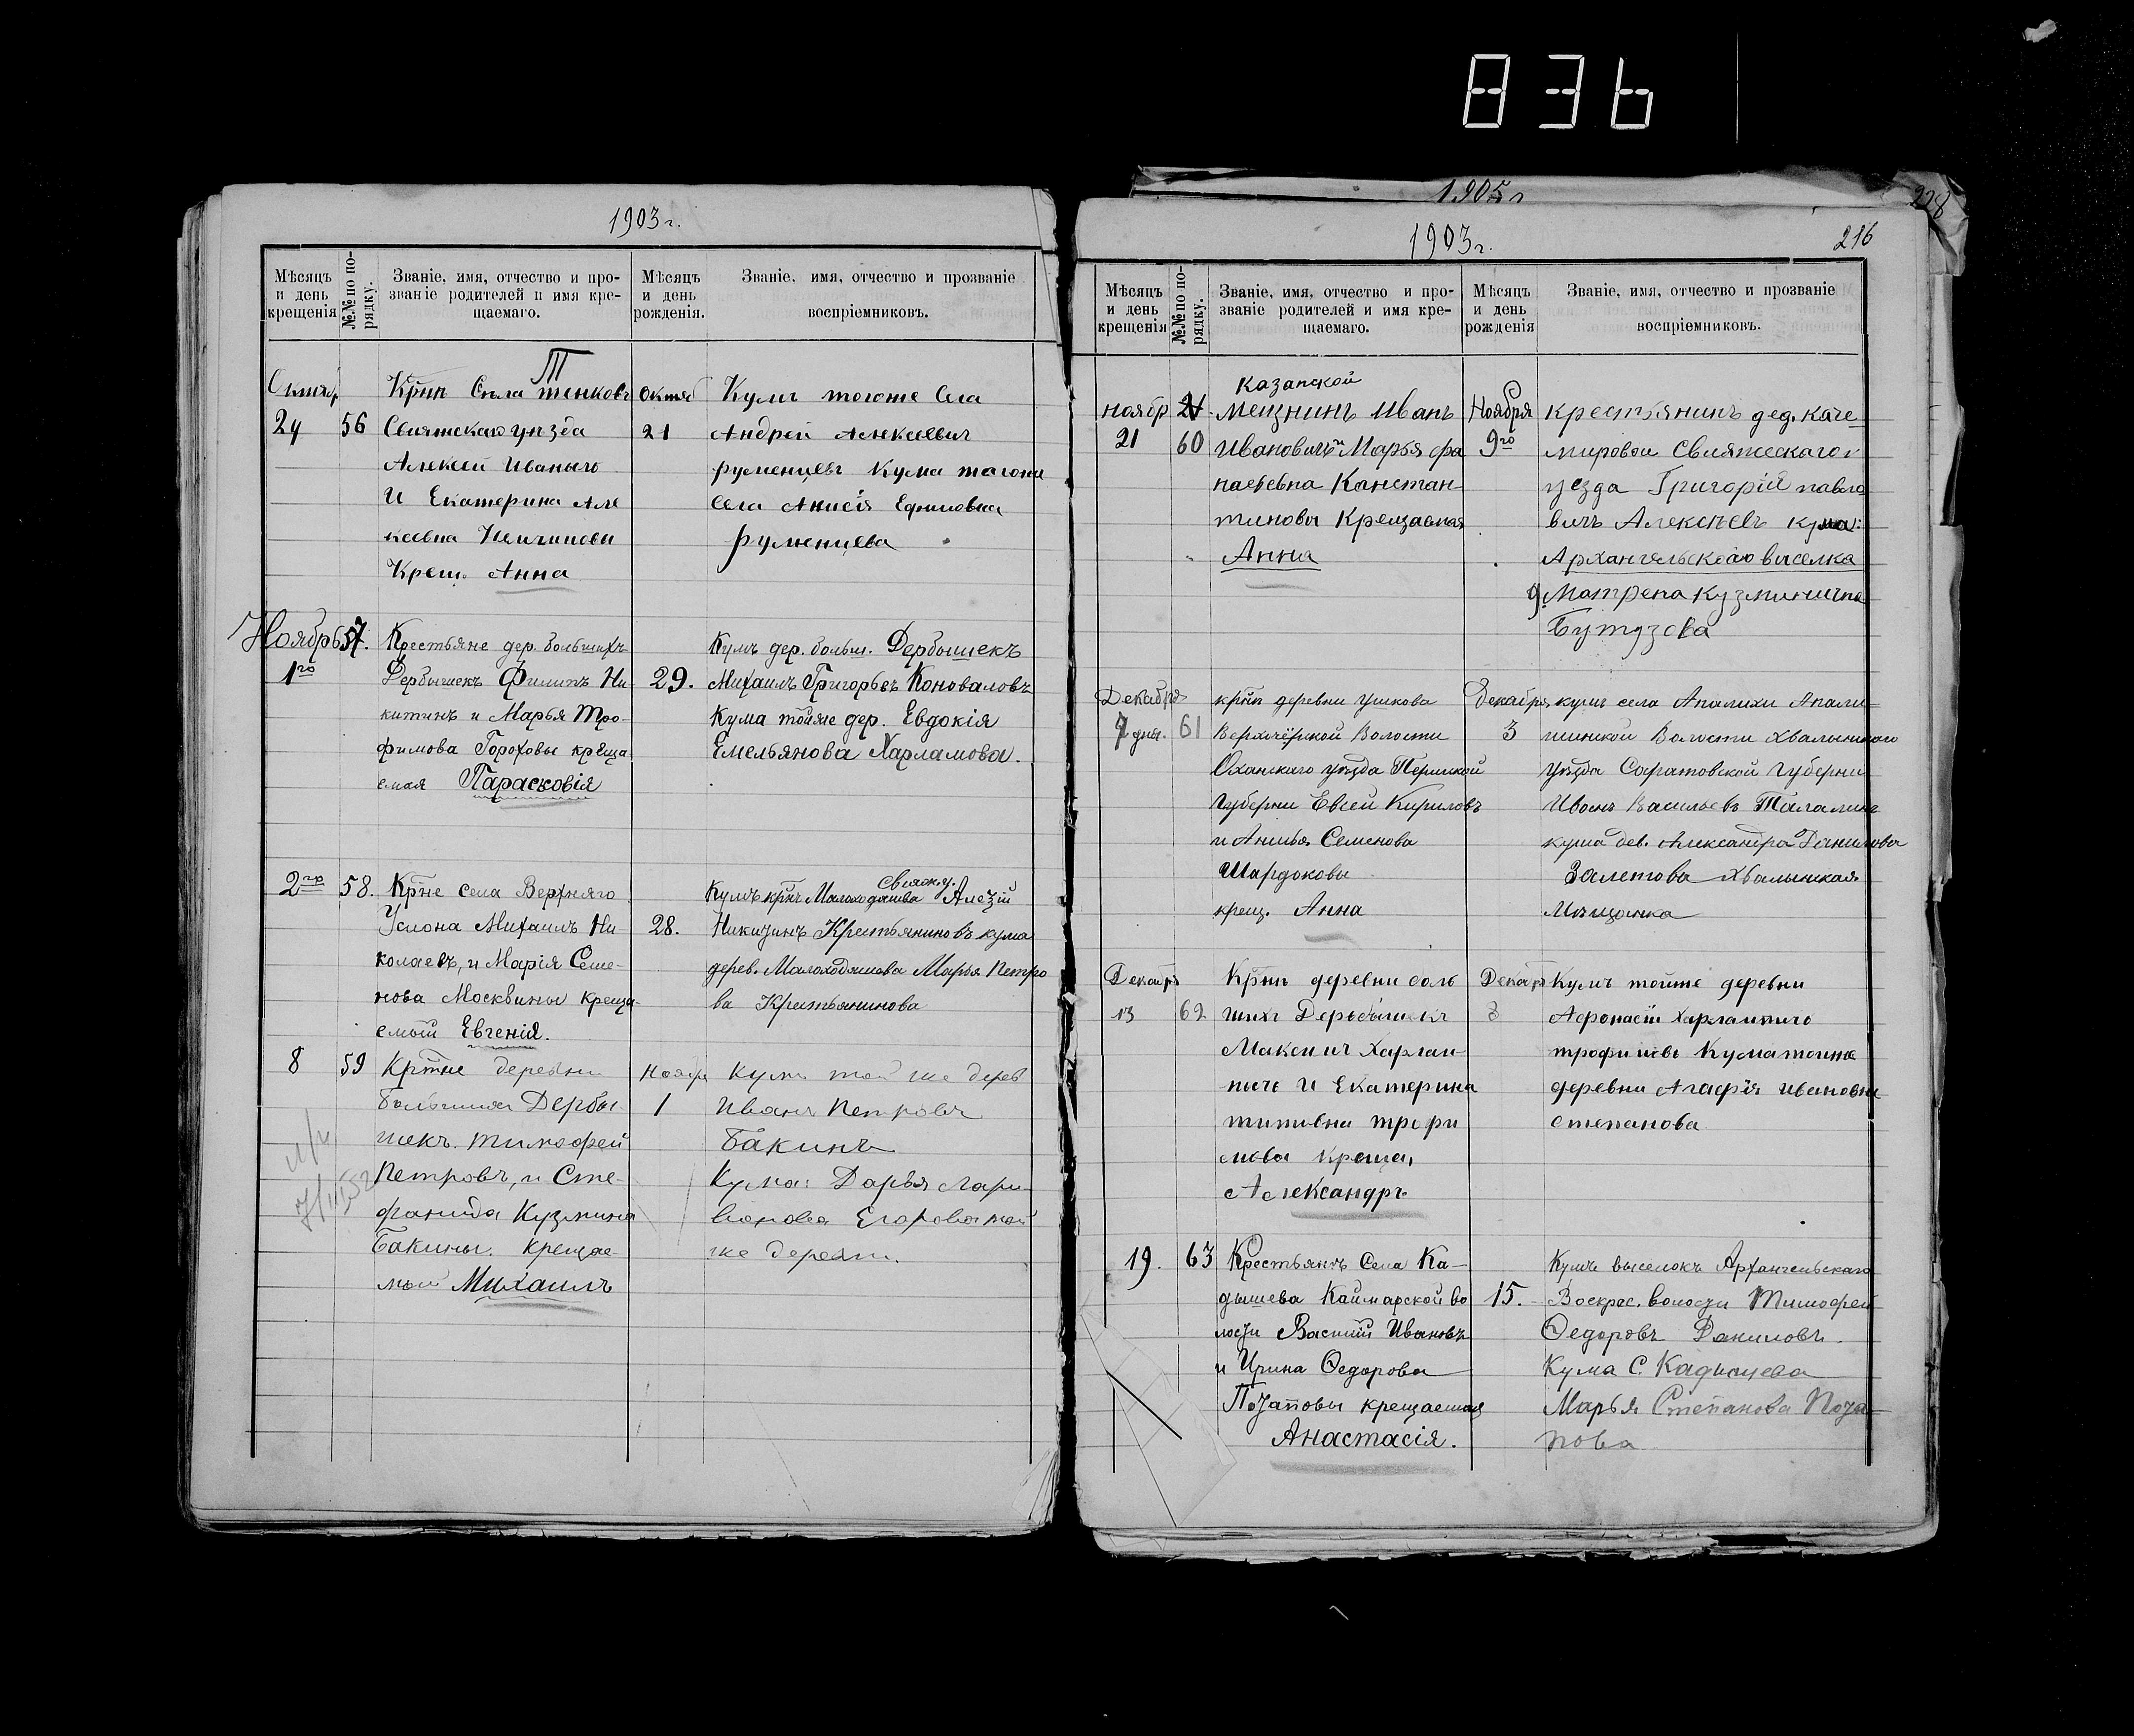 836
1905г
228
1903г.
Мѣсяцъ и день крещенія
№№ по порядку.
Званіе, имя, отчество и прозваніе родителей и имя крещаемаго.
Мѣсяцъ и день рожденія.
Званіе, имя, отчество и прозваніе воспріемниковъ.
24 56
Алексей Иваныго
И Екатерина Але
Крещ. Анна
21
Кумъ тогоже Села
Андрей Алексеевич
руменцевъ Кума тогоже
Села Анисія Ефимовна
руменцева
Ноябрь 57.
1го
Крестьяне дер. большихъ
Дербышекъ Филипъ Ни
китинъ и Марья Тро-
фимова Гороховы креща
емая Парасковія
29.
Кумъ дер. больш. Дербышекъ
Михаилъ Григорьевъ Коноваловъ
Кума тойже дер. Евдокія
Емельянова Харламова.
2го 58.
Крне села Верхняго
Услона Михаилъ Ни
колаевъ, и Марія Семе-
нова Москвины креща-
емый Евгеній.
28.
Никитинъ Крестьяниновъ кума
дерев. Малоходяшева Марья Петро
ва Крестьянинова
8 59
Кртне деревни
Дербы
шекъ. Тимофей
Петровъ, и Сте-
фанида Кузмина
Бакины. крещае-
мый Михаилъ
Ноябр
1
Кумъ той же дерев
Иванъ Петровъ
Бакинъ
Кума: Дарья Лари
вонова Егорова той
же деревни.
1903г.
216
Мѣсяцъ и день крещенія
№№ по порядку.
Званіе, имя, отчество и прозваніе родителей и имя крещаемаго.
Мѣсяцъ и день рожденія
Званіе, имя, отчество и прозваніе воспріемниковъ.
ноябр
21 60
казанской
мещнинъ Иванъ
Ивановичъ и Марья Афа
насьевна Канстан-
тиновы Крещаемая
Анна
Ноября
9го
крестьянинъ дер. каче
мировои Свияжескаго
уезда Григорій павло
вичъ Алексѣевъ кума:
Архангельскаго выселка
Матрена кузминична
Декабря
7 дня. 61
крнъ деревни ушкова
Волости
Оханскаго уѣзда Пермской
Губерни Евсей Кириловъ
и Анисья Семенова
Шардоковы
крещ. Анна
Декабря
3
кумъ села Апалихи Апали-
шинской Волости Хвалынскаго
Уѣзда Саратовской Губерни
Иванъ Васильевъ Таламинъ
кума дев. Александра Данилова
Залетова Хвалынская
Мѣщанка
13 62
Крнъ деревни боль
шихъ Дербышекъ
Максимъ Харлам-
пычъ И Екатерина
титивна трофи
мова Креща.
Александръ
8
Кумъ тойже деревни
Афонасій Харлампичо
трофимовъ Кума тоиже
деревни Агафія ивановна
степанова
19. 63
Крестьянъ Села Ка-
дышева Каймарской во
лости Василій Ивановъ
и Ирина Ѳедорова
Потаповы крещаемая
Анастасія.
15.
Кумъ выселокъ Архангельскаго
Воскрес. волости Тимофей
Ѳедоровъ Даниловъ.
Кума С. Кадышева
Марья Степанова Пота
пова